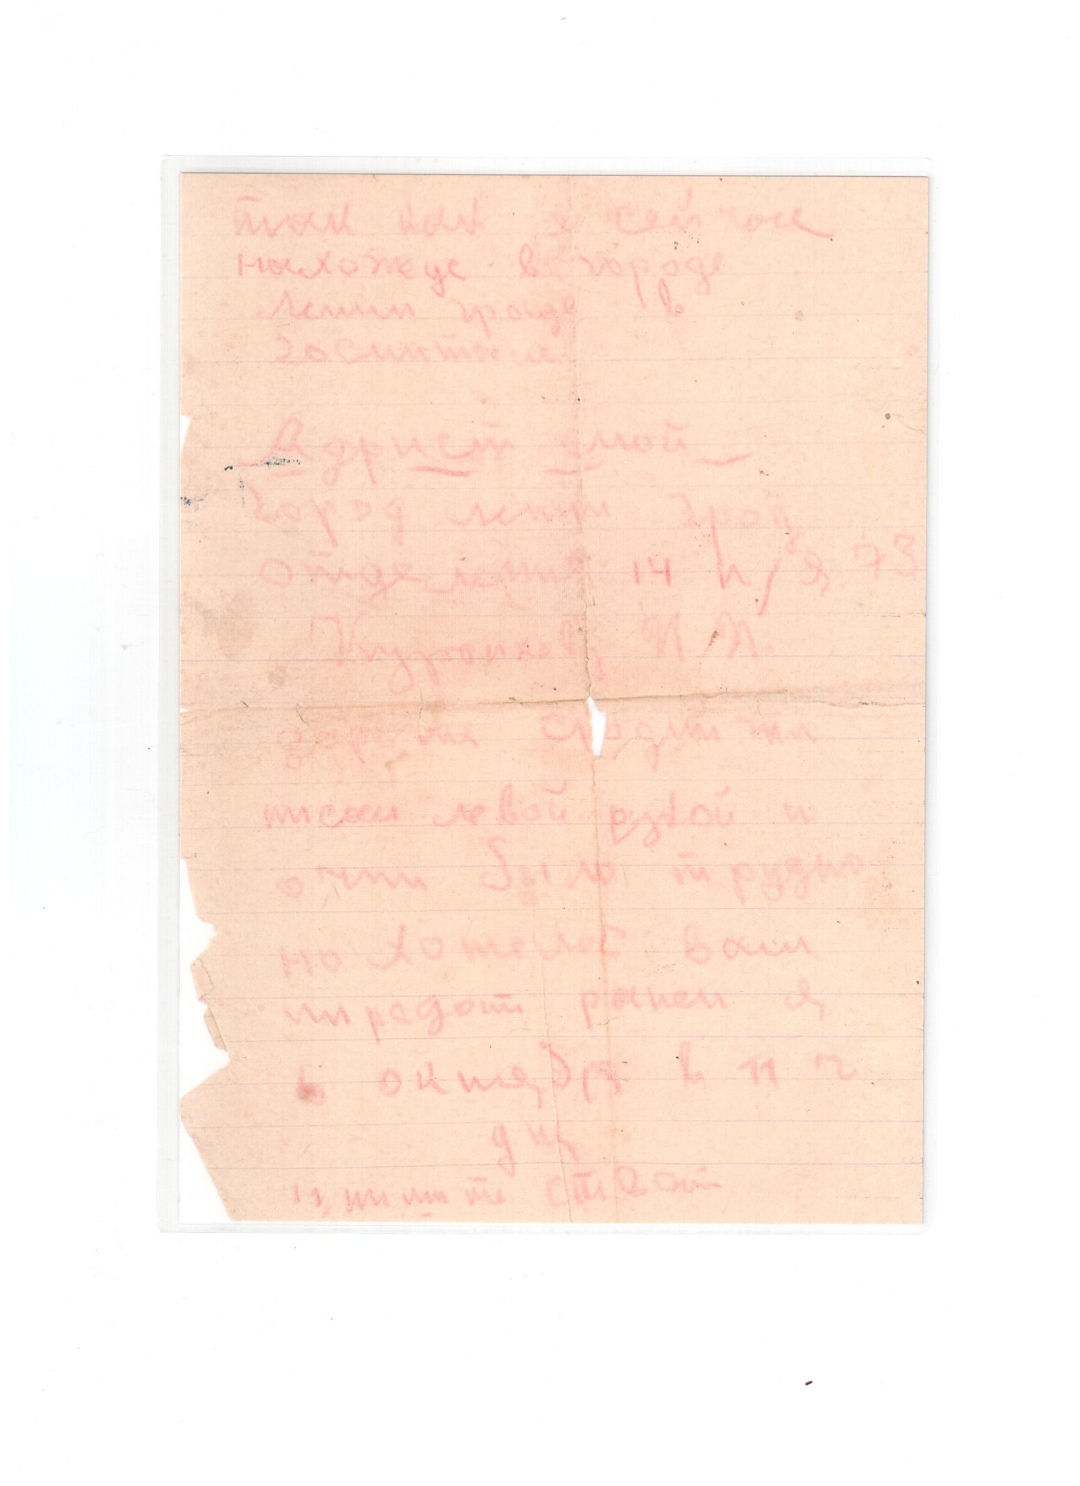 так как я сейчас
нахожус в городе
Ленин граде в
госпитале
Адрист мой
город Ленин град
отделения 14 п/я 73
И. И.
писал левой рукой и
очин было трудно
но хотелос вам
передат ранен я
6 октября в 11 ч
дня
пишите ответ